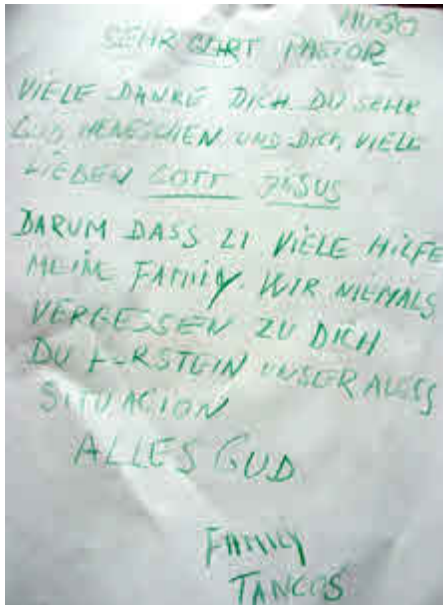 HUGO
SEHR GERT PASTOR
VIELE DANKE DICH. DU SEHR
GUD MENESCHEN UND DICH VIELE
LIEBEN GOTT JÄSUS
DARUM DASS ZI VIELE HILFE
MEINE FAMILY. WIR NIEMALS
VERGESSEN ZU DICH
DU UNSER
SITUACION
ALLES GUD
FAMILY
TANCOS